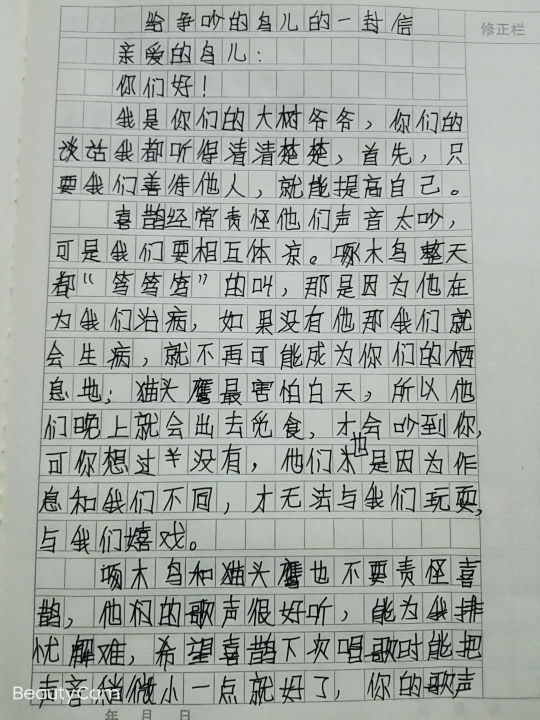 给争吵的鸟儿的一封信
修正栏
亲爱的鸟儿：
你们好！
我是你们的大树爷爷，你们的
谈话我都听得清清楚楚，首先，只
要我们善待他人，就能提高自己。
喜鹊经常责怪他们声音太吵，
可是我们要相互体谅。啄木鸟整天
都“笃笃笃”的叫，那是因为他在
为我们治病，如果没有他那我们就
会生病，就不再可能成为你们的栖
息地；猫头鹰最害怕白天，所以他
们晚上就会出去觅食，才会吵到你，
可你想过没有，他们也是因为作
息和我们不同，才无法与我们玩耍，
与我们嬉戏。
啄木鸟和猫头鹰也不要责怪喜
鹊，他们的歌声很好听，能为我排
忧解难，希望喜鹊下次唱歌时能把
声音稍微小一点就好了，你的歌声
BeautyCam
年 月 日